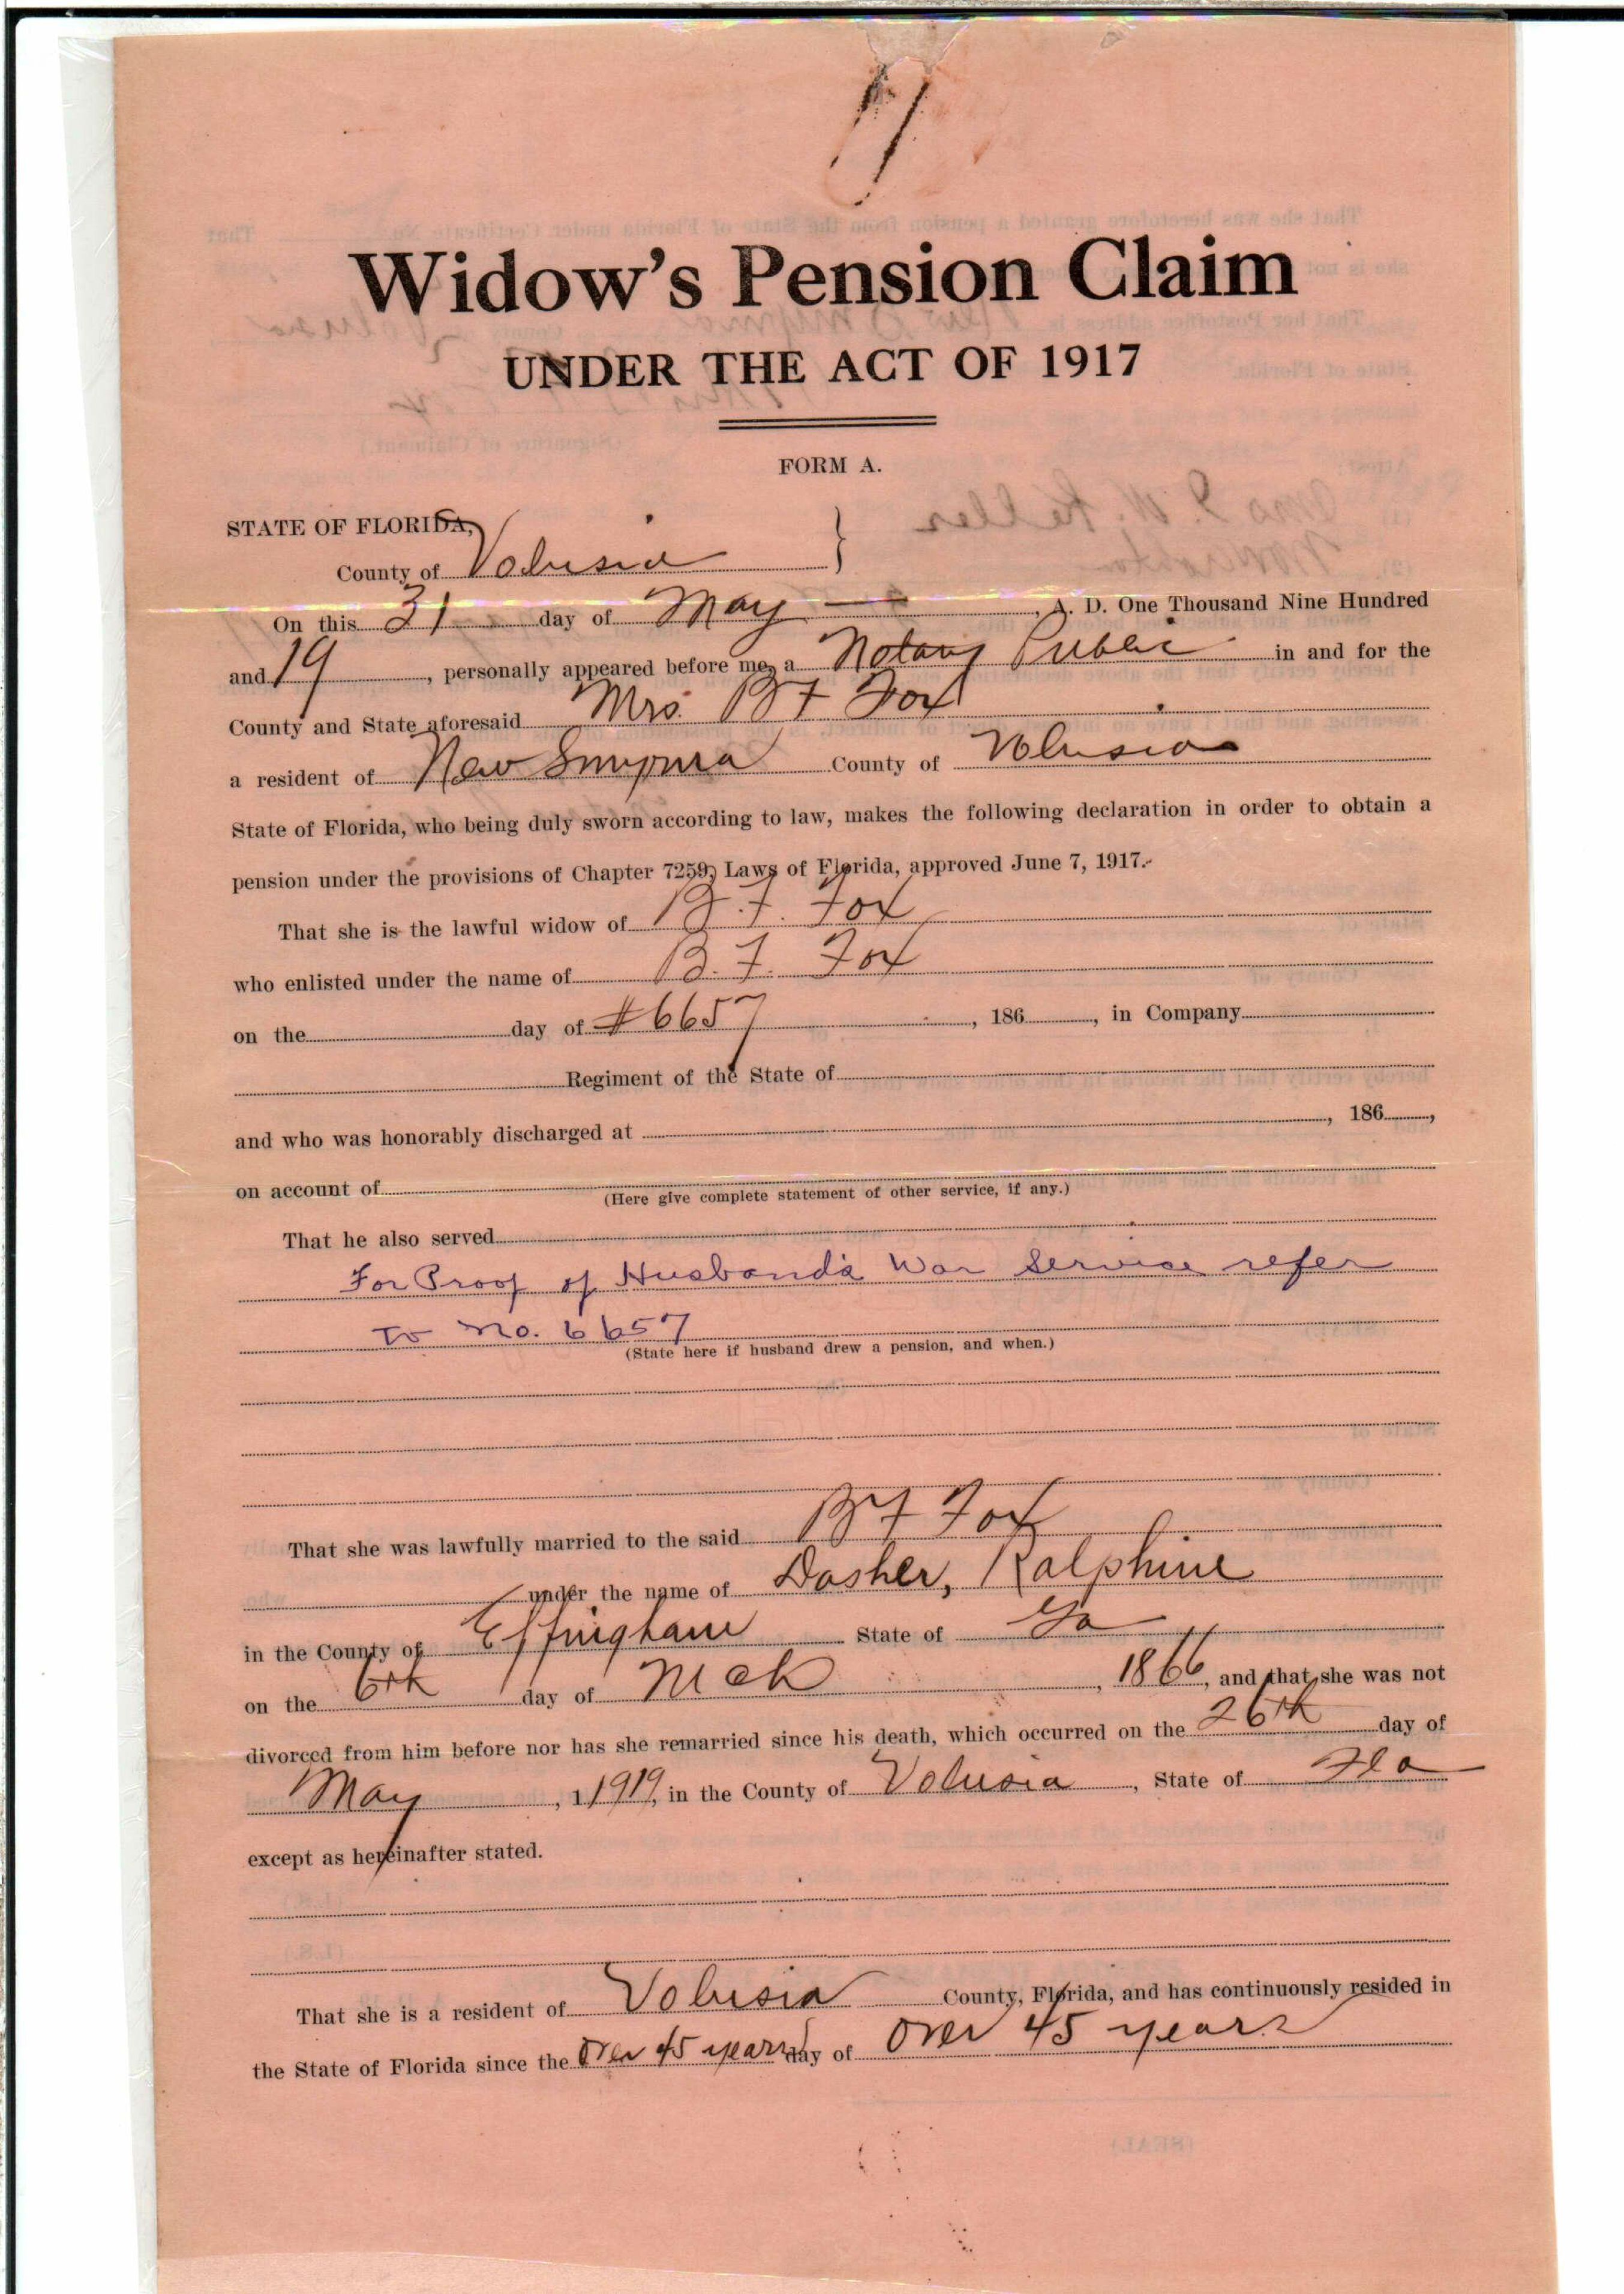 Widow's Pension Claim
UNDER THE ACT OF 1917
FORM A.
STATE OF FLORIDA,
County of Volusia }
On this 31 day of May —, A. D. One Thousand Nine Hundred
and 19, personally appeared before me, a Notary Public in and for the
County and State aforesaid Mrs. B F Fox
a resident of New Smyrna County of Volusia
State of Florida, who being duly sworn according to law, makes the following declaration in order to obtain a
pension under the provisions of Chapter 7259, Laws of Florida, approved June 7, 1917.
That she is the lawful widow of B. F. Fox
who enlisted under the name of B. F. Fox
on the day of #6657, 186, in Company
Regiment of the State of
and who was honorably discharged at , 186,
on account of
(Here give complete statement of other service, if any.)
That he also served
For Proof of Husband's War Service refer
to No. 6657
(State here if husband drew a pension, and when.)
That she was lawfully married to the said B F Fox
under the name of Dasher, Ralphine
in the County of Effingham State of Ga
on the 6th day of Mch, 1866, and that she was not
divorced from him before nor has she remarried since his death, which occurred on the 26th day of
May, 1 1919, in the County of Volusia, State of Fla
except as hereinafter stated.
That she is a resident of Volusia County, Florida, and has continuously resided in
the State of Florida since the Over 45 years day of Over 45 years